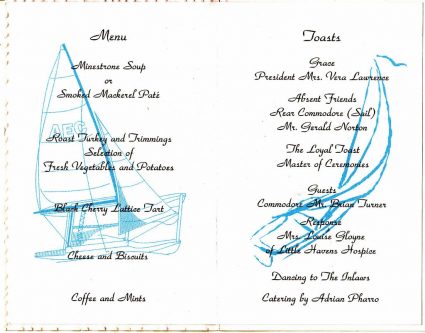 Menu
Minestrone Soup
or
Smoked Mackerel Paté
AEC
Roast Turkey and Trimmings
Selection of
Fresh Vegetables and Potatoes
Black Cherry Lattice Tart
Cheese and Biscuits
Coffee and Mints
Toasts
Grace
President Mrs. Vera Lawrence
Absent Friends
Rear Commodore (Sail)
Mr. Gerald Norton
The Loyal Toast
Master of Ceremonies
Guests
Commodore Mr. Brian Turner
Response
Mrs. Louise Gloyne
of Little Havens Hospice
Dancing to The Inlaws
Catering by Adrian Pharro